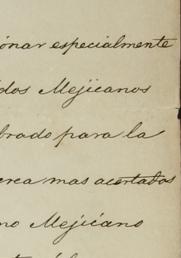 ónar especialmente
idos Mejicanos
brado para la
erea mas acertados
no Mejicano